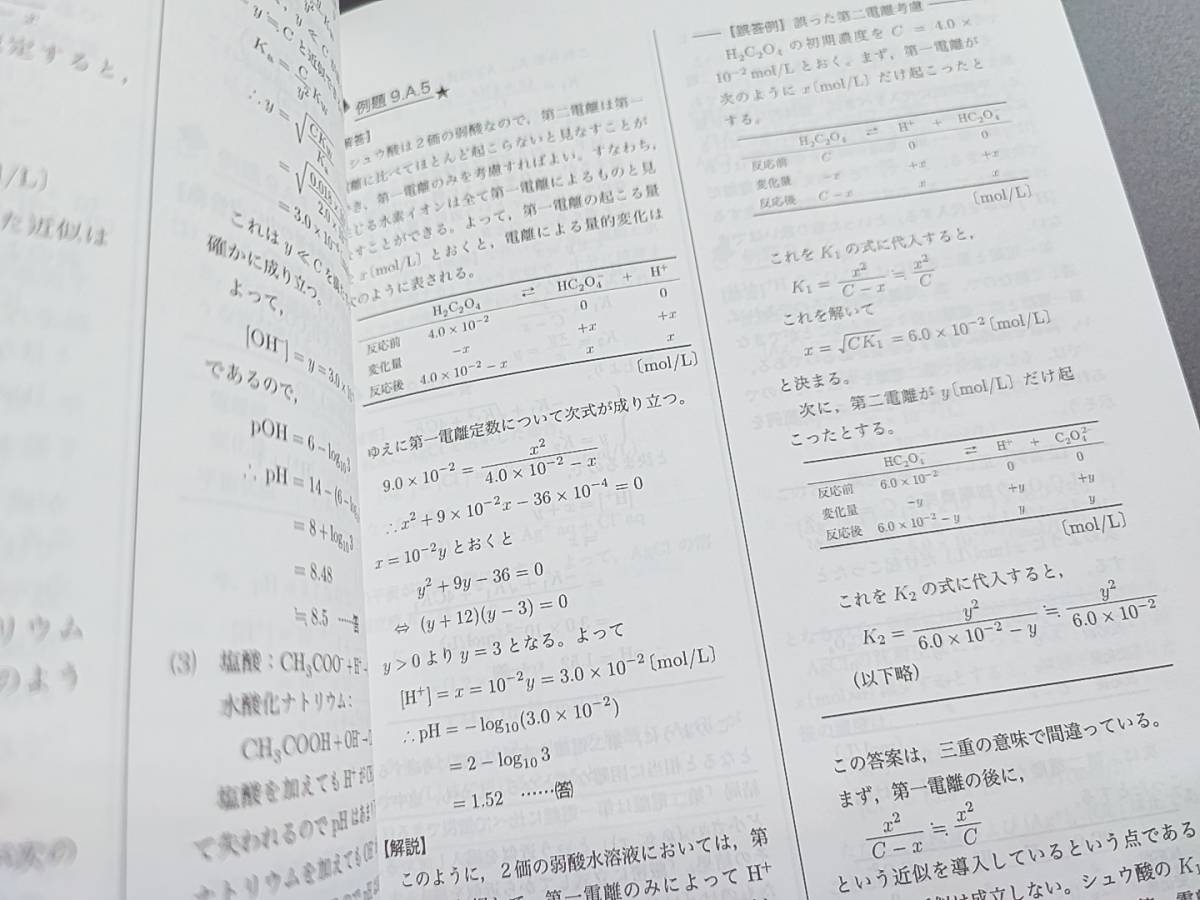 定すると,
た近似は
リウム
のよう
次の
と近似
これは y ≪ C を
確かに成り立つ。
よって,
[OH⁻] = y = 3.0 ×
であるので,
pOH = 6 − log₁₀3
∴ pH = 14 − (6 − log
= 8 + log₁₀3
= 8.48
≒ 8.5
(3) 塩酸:CH₃COO⁻ + H⁺
水酸化ナトリウム:
CH₃COOH + OH⁻
塩酸を加えても H⁺ が
て失われるので pH は
ナトリウムを加えても
例題 9.A.5 ★
解答】
シュウ酸は2価の弱酸なので, 第二電離は第一
離に比べてほとんど起こらないと見なすことが
き, 第一電離のみを考慮すればよい。すなわち,
じる水素イオンは全て第一電離によるものと見
すことができる。よって, 第一電離の起こる量
x〔mol/L〕とおくと, 電離による量的変化は
のように表される。
H₂C₂O₄ ⇄ HC₂O₄⁻ + H⁺
反応前 4.0 × 10⁻² 0 0
変化量 −x +x +x
反応後 4.0 × 10⁻² − x x x
〔mol/L〕
ゆえに第一電離定数について次式が成り立つ。
9.0 × 10⁻² = x² / (4.0 × 10⁻² − x)
∴ x² + 9 × 10⁻²x − 36 × 10⁻⁴ = 0
x = 10⁻²y とおくと
y² + 9y − 36 = 0
⇔ (y + 12)(y − 3) = 0
y > 0 より y = 3 となる。よって
[H⁺] = x = 10⁻²y = 3.0 × 10⁻²〔mol/L〕
∴ pH = −log₁₀(3.0 × 10⁻²)
= 2 − log₁₀3
= 1.52 ……(答)
【解説】
このように, 2価の弱酸水溶液においては, 第
第一電離のみによって H⁺
【誤答例】誤った第二電離考慮
H₂C₂O₄ の初期濃度を C = 4.0 ×
10⁻² mol/L とおく。まず, 第一電離が
次のように x〔mol/L〕だけ起こったと
する。
H₂C₂O₄ ⇄ H⁺ + HC₂O₄⁻
反応前 C 0 0
変化量 −x +x +x
反応後 C − x x x
〔mol/L〕
これを K₁ の式に代入すると,
K₁ = x² / (C − x) ≒ x² / C
これを解いて
x = √(CK₁) = 6.0 × 10⁻²〔mol/L〕
と決まる。
次に, 第二電離が y〔mol/L〕だけ起
こったとする。
HC₂O₄⁻ ⇄ H⁺ + C₂O₄²⁻
反応前 6.0 × 10⁻² 0 0
変化量 −y +y +y
反応後 6.0 × 10⁻² − y y y
〔mol/L〕
これを K₂ の式に代入すると,
K₂ = y² / (6.0 × 10⁻² − y) ≒ y² / (6.0 × 10⁻²)
(以下略)
この答案は, 三重の意味で間違っている。
まず, 第一電離の後に,
x² / (C − x) ≒ x² / C
という近似を導入しているという点である
は成立しない。シュウ酸の K₁